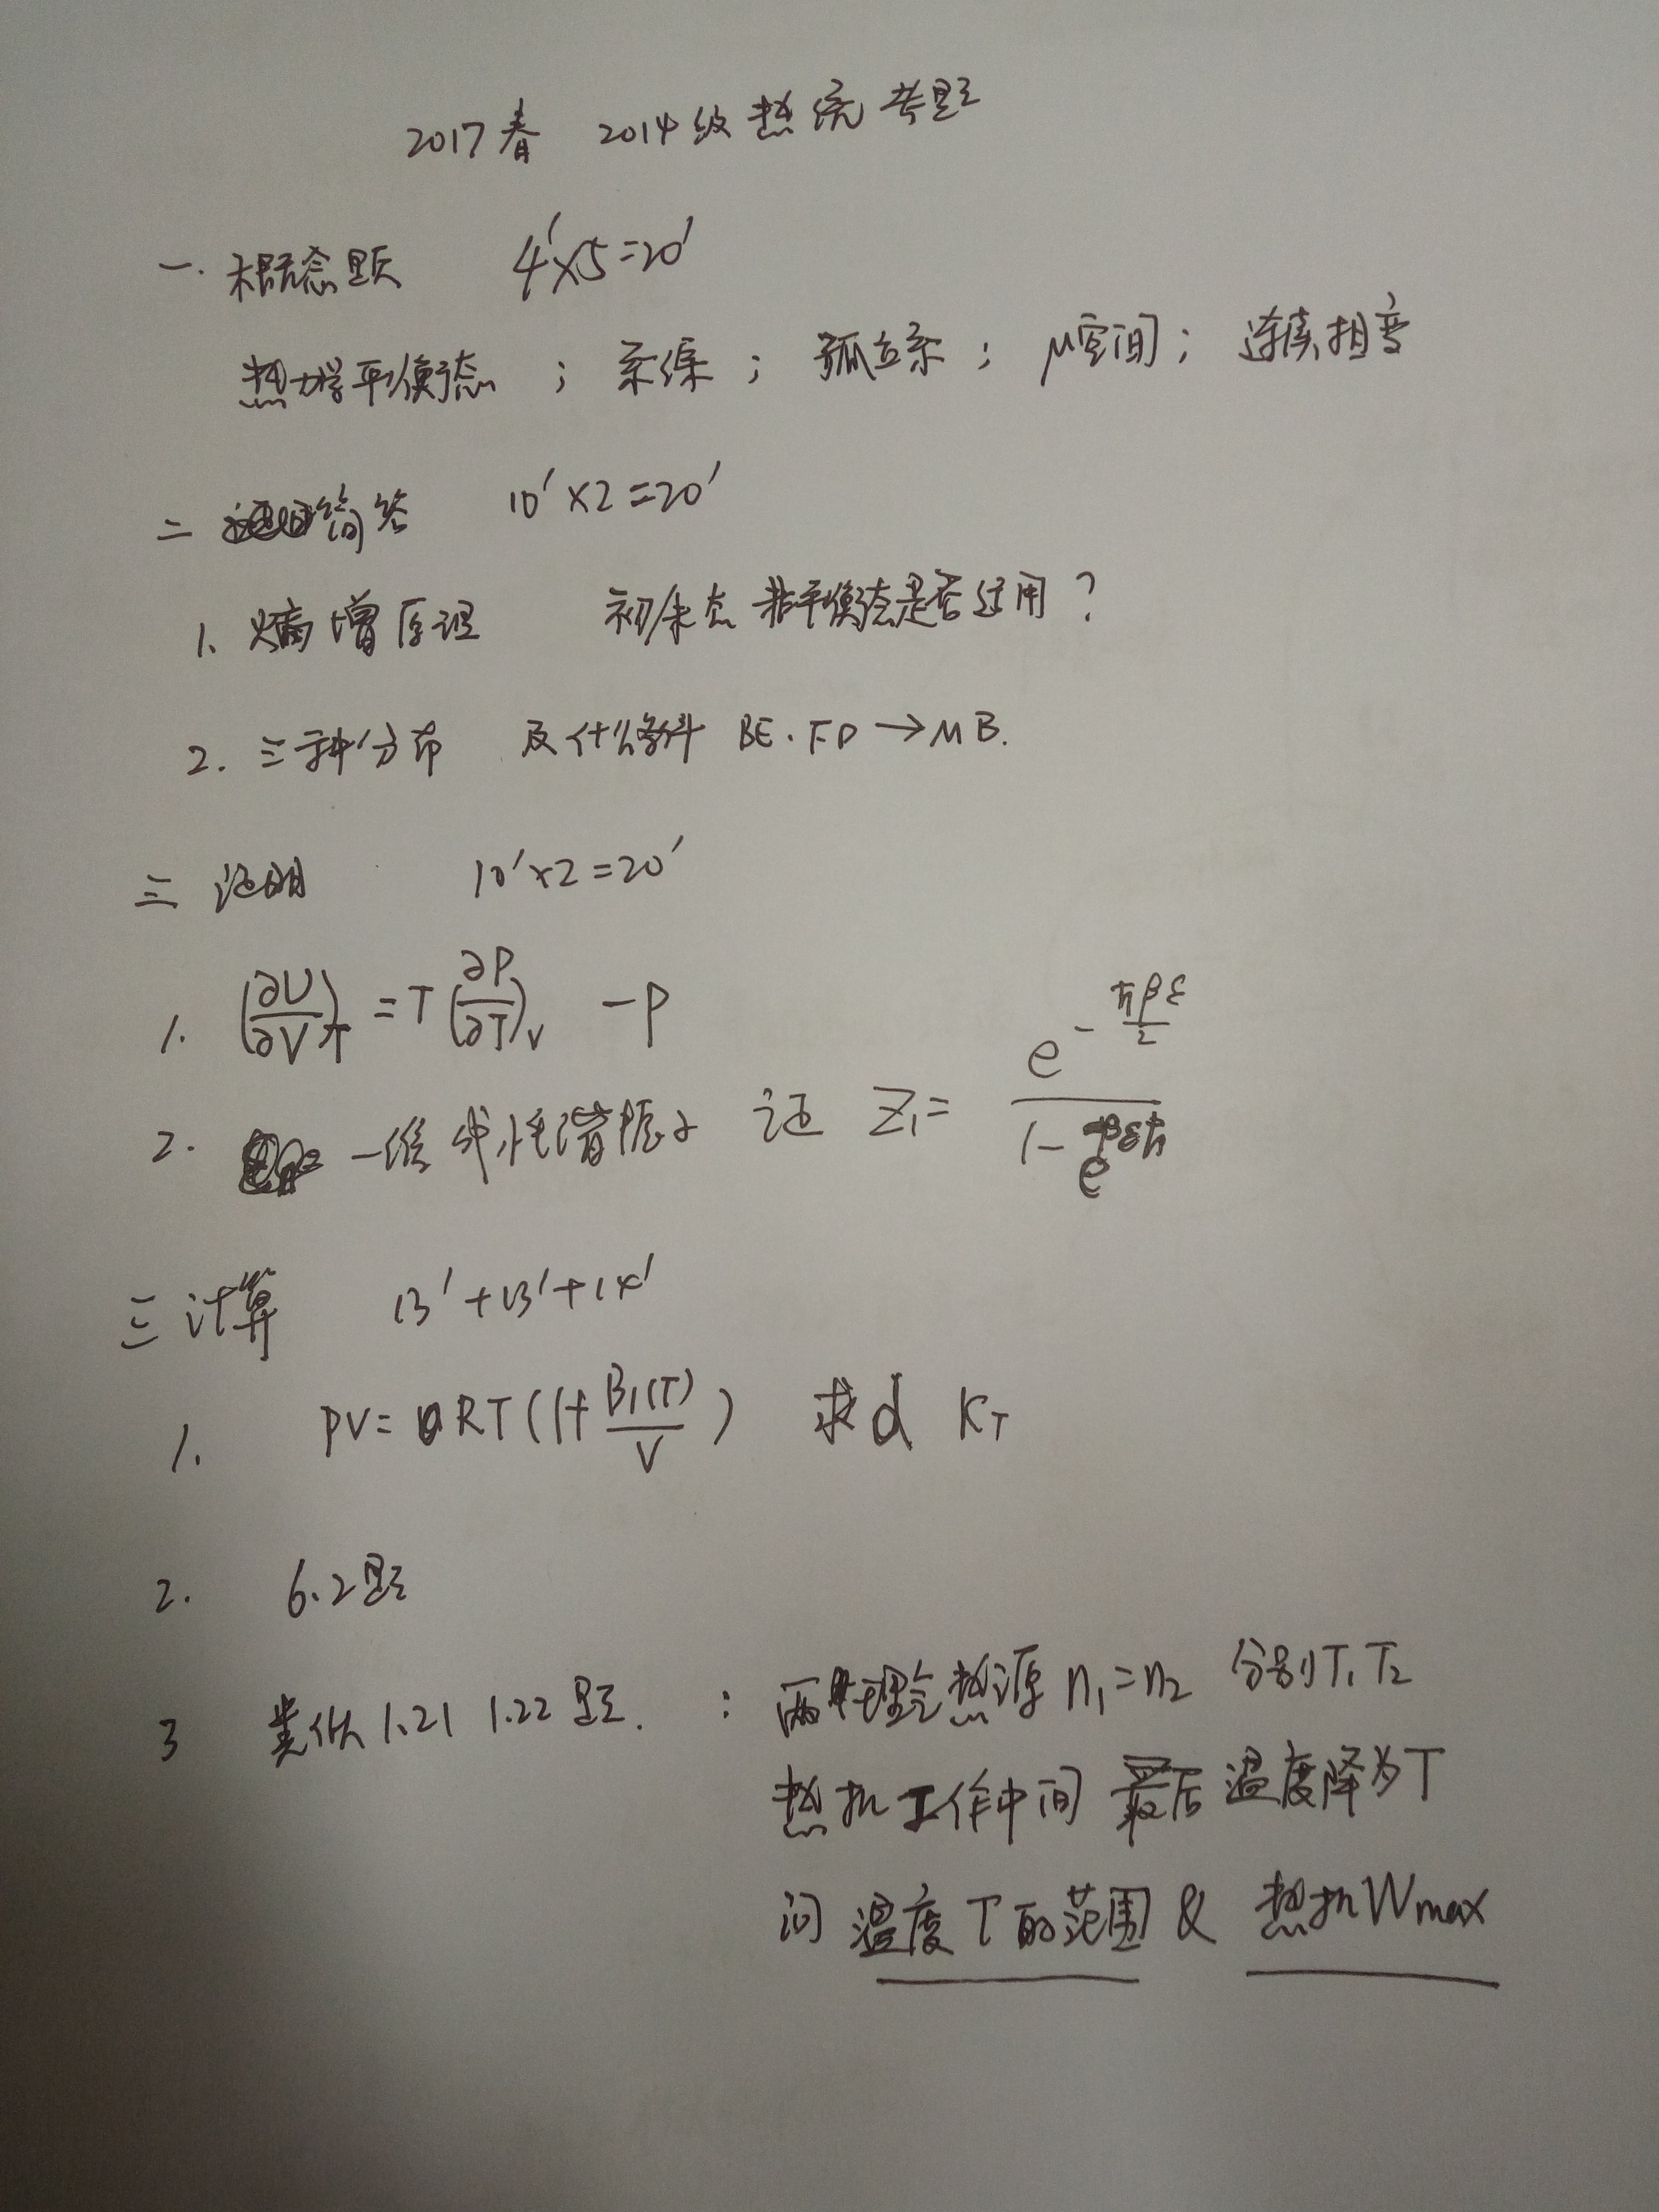 2017春 2014级热统考题
一. 概念题 4'×5=20'
热力学平衡态 ; 系综 ; 孤立系 ; μ空间 ; 连续相变
二 简答 10'×2=20'
1. 熵增原理 初末态非平衡态是否适用?
2. 三种分布 及什么条件 BE. FD → MB.
三 证明 10'×2=20'
1. (∂U/∂V)_T = T(∂P/∂T)_V - P
2. 一维线性谐振子 证 Z₁= e^(-ℏβε/2) / (1-e^(-βεℏ))
三 计算 13'+13'+14'
1. PV= RT(1+B₁(T)/V) 求α K_T
2. 6.2题
3 类似1.21 1.22题. : 两 理气热源 n₁=n₂ 分别T₁ T₂
热机工作中间 最后温度降为T
问 温度T的范围 & 热机Wmax